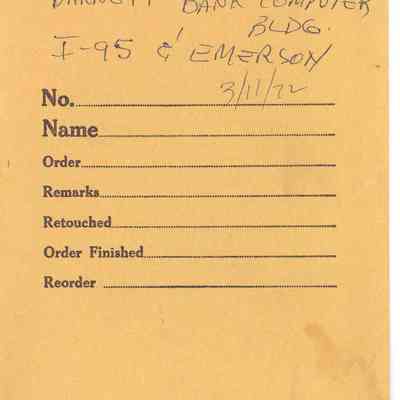 BARNETT BANK COMPUTER
BLDG.
I-95 & EMERSON
3/11/72
No.
Name
Order
Remarks
Retouched
Order Finished
Reorder